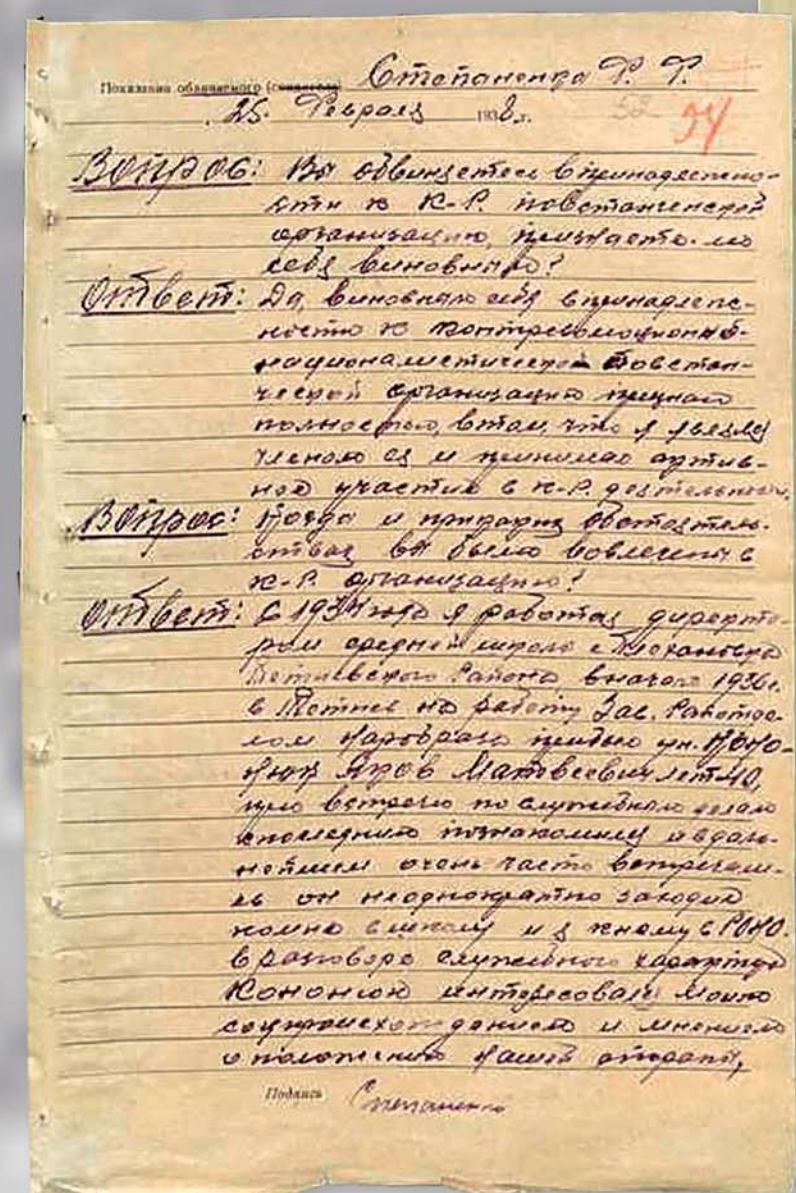 Показания обвиняемого (свидетеля) Степаненка Ф. Ф.
25. Февраля 1938 г.
52 94
Вопрос: Вы обвиняетесь в принадлежно-
сти к К-Р. повстанческой
организации, признаете-ли
себя виновным?
Ответ: Да, виновным себя в принадлеж-
ности к контрреволюционно-
националистической повстан-
ческой организации признаю
полностью, в том, что я являлся
членом ея и принимал актив-
ное участие в К-Р. деятельности.
Вопрос: Когда и при каких обстоятель-
ствах вы были вовлечены в
К-Р. организацию?
Ответ: С 1934 года я работал директо-
ром средней школы с
Района, вначале 1936 г.
в на работу Зав. Райотде-
лом Наробраза прибыл ук. Коно-
нюк Яков Матвеевич лет 40,
при встрече по служебным делам
с последним познакомился и в даль-
нейшем очень часто встречали-
сь он неоднократно заходил
ко мне в школу и я к нему в РОНО.
в разговоре служебного характера
Кононюк интересовался моим
соцпроисхождением и мнением
о положении нашей страны,
Подпись Степаненко